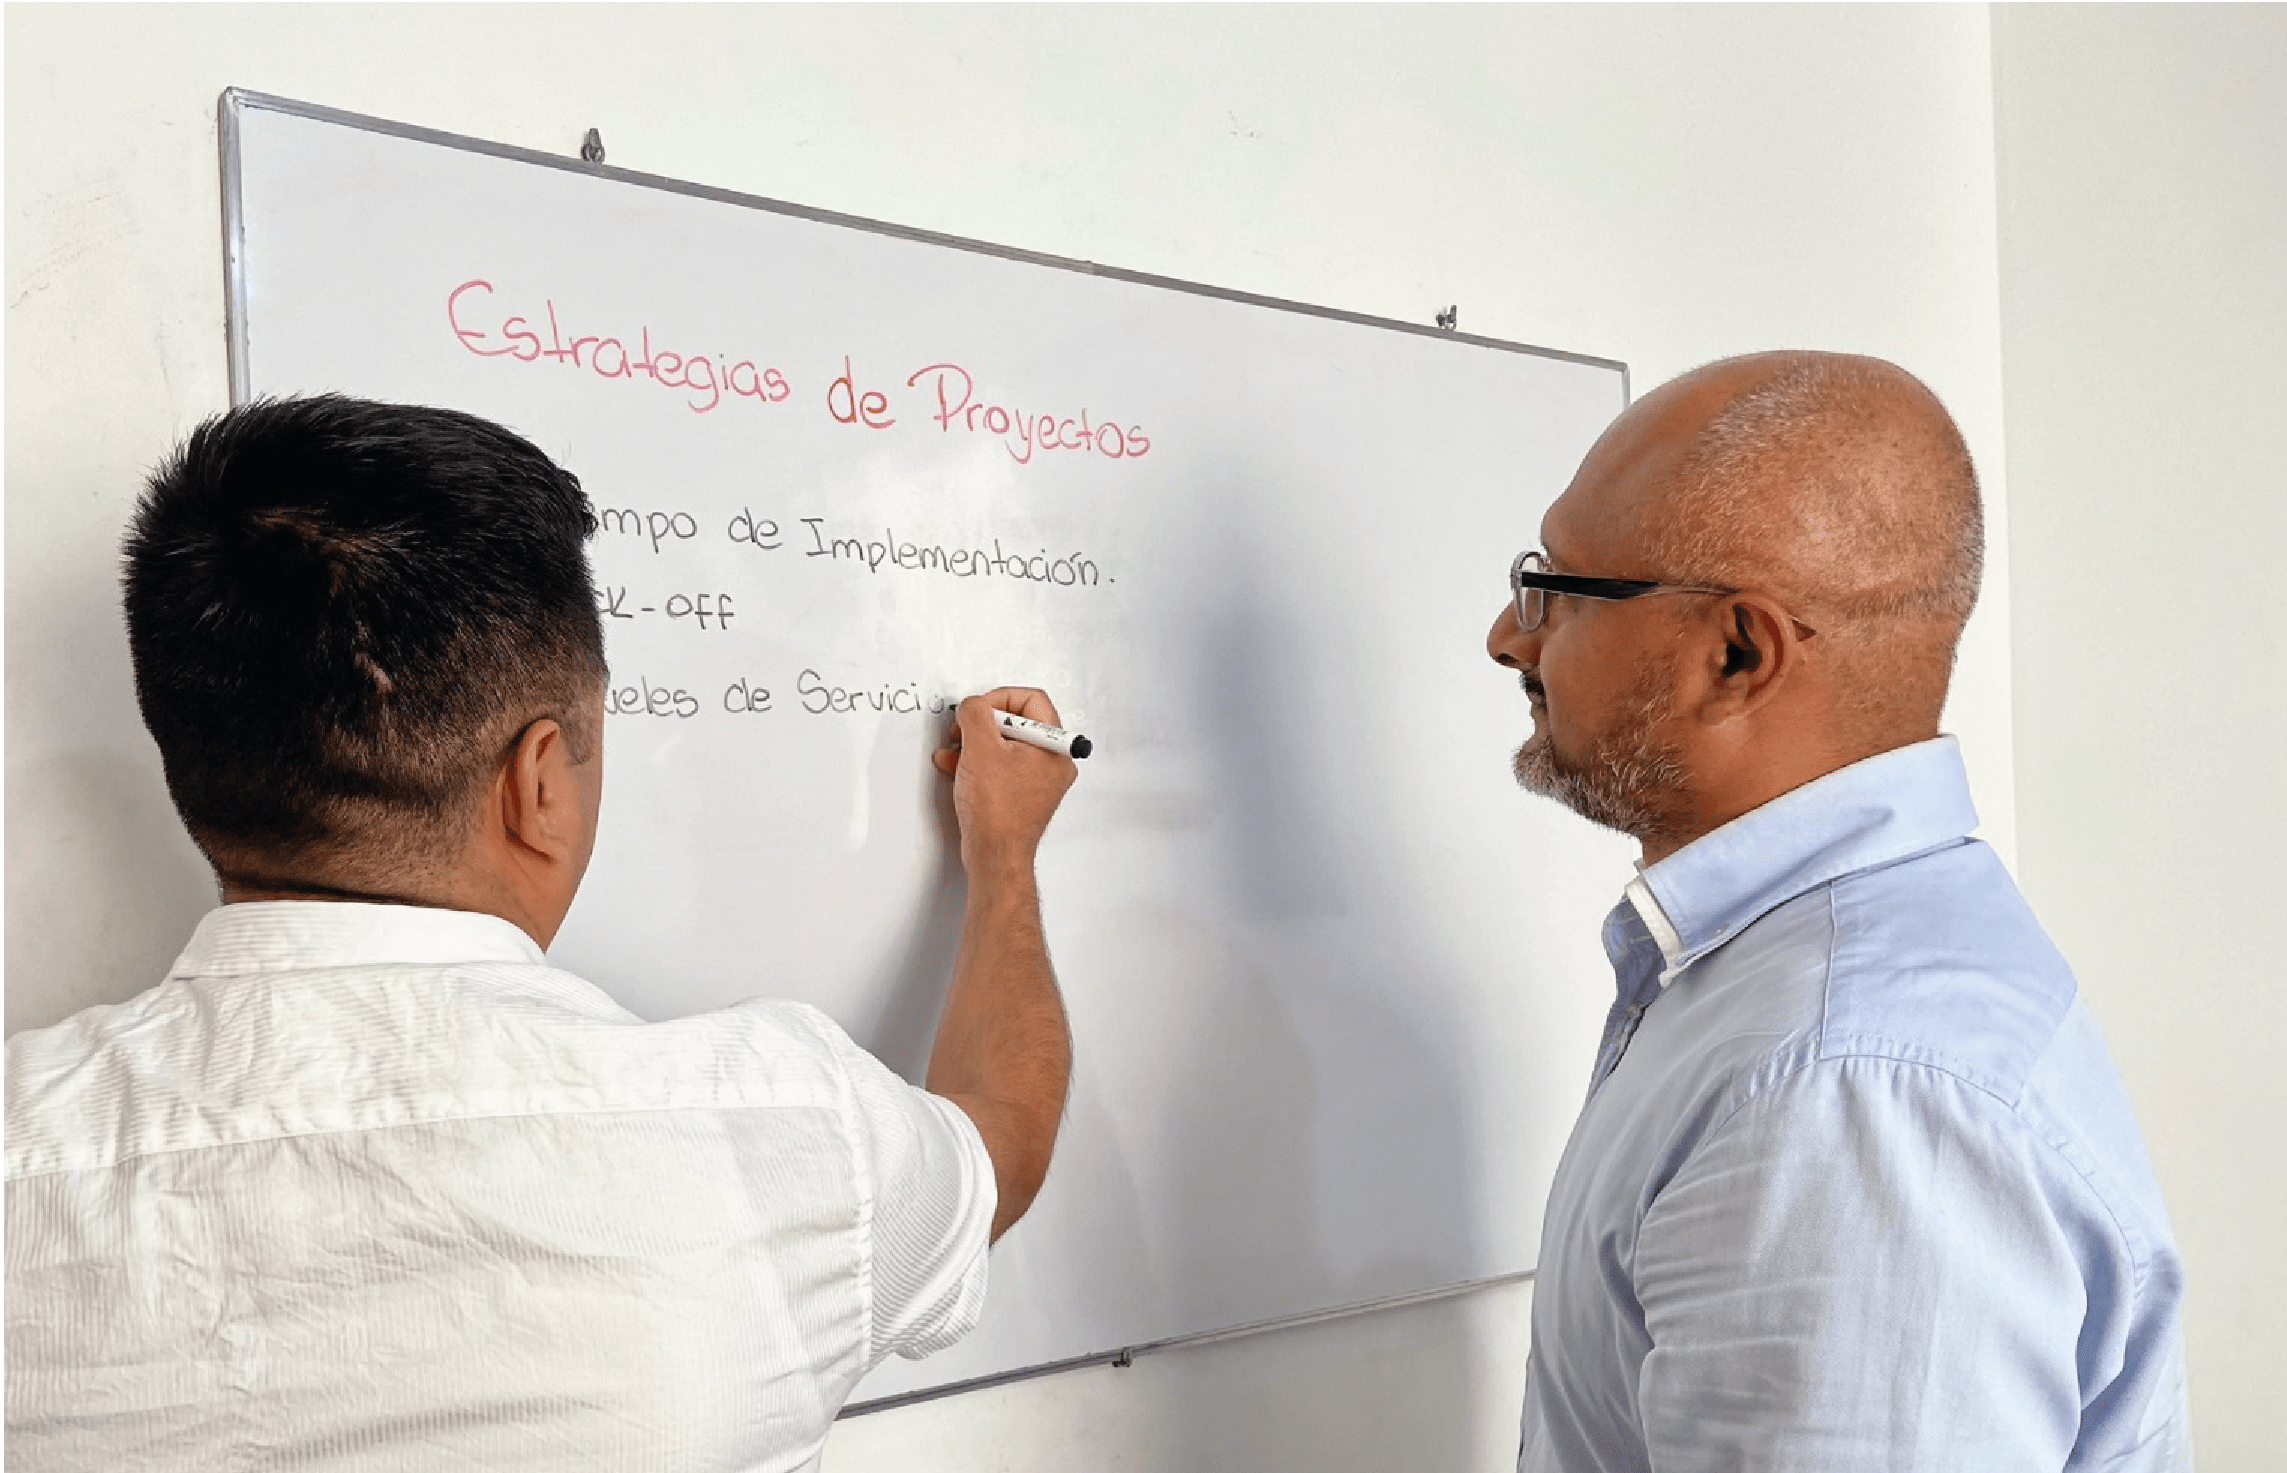 Estrategias de Proyectos
mpo de Implementación.
K-OFF
eles de Servicio